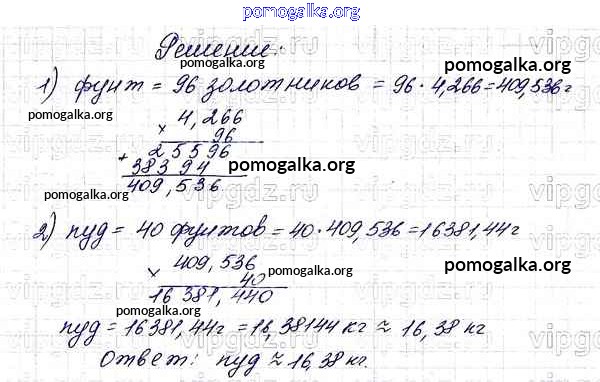 pomogalka.org
Решение:
1) фунт = 96 золотников = 96 · 4,266 = 409,536 г
pomogalka.org
pomogalka.org
× 4,266
96
25596
+ 38394
409,536
pomogalka.org
pomogalka.org
2) пуд = 40 фунтов = 40 · 409,536 = 16381,44 г
× 409,536
40
16381,440
pomogalka.org
pomogalka.org
pomogalka.org
пуд = 16381,44 г = 16,38144 кг ≈ 16,38 кг
Ответ: пуд ≈ 16,38 кг.
pomogalka.org